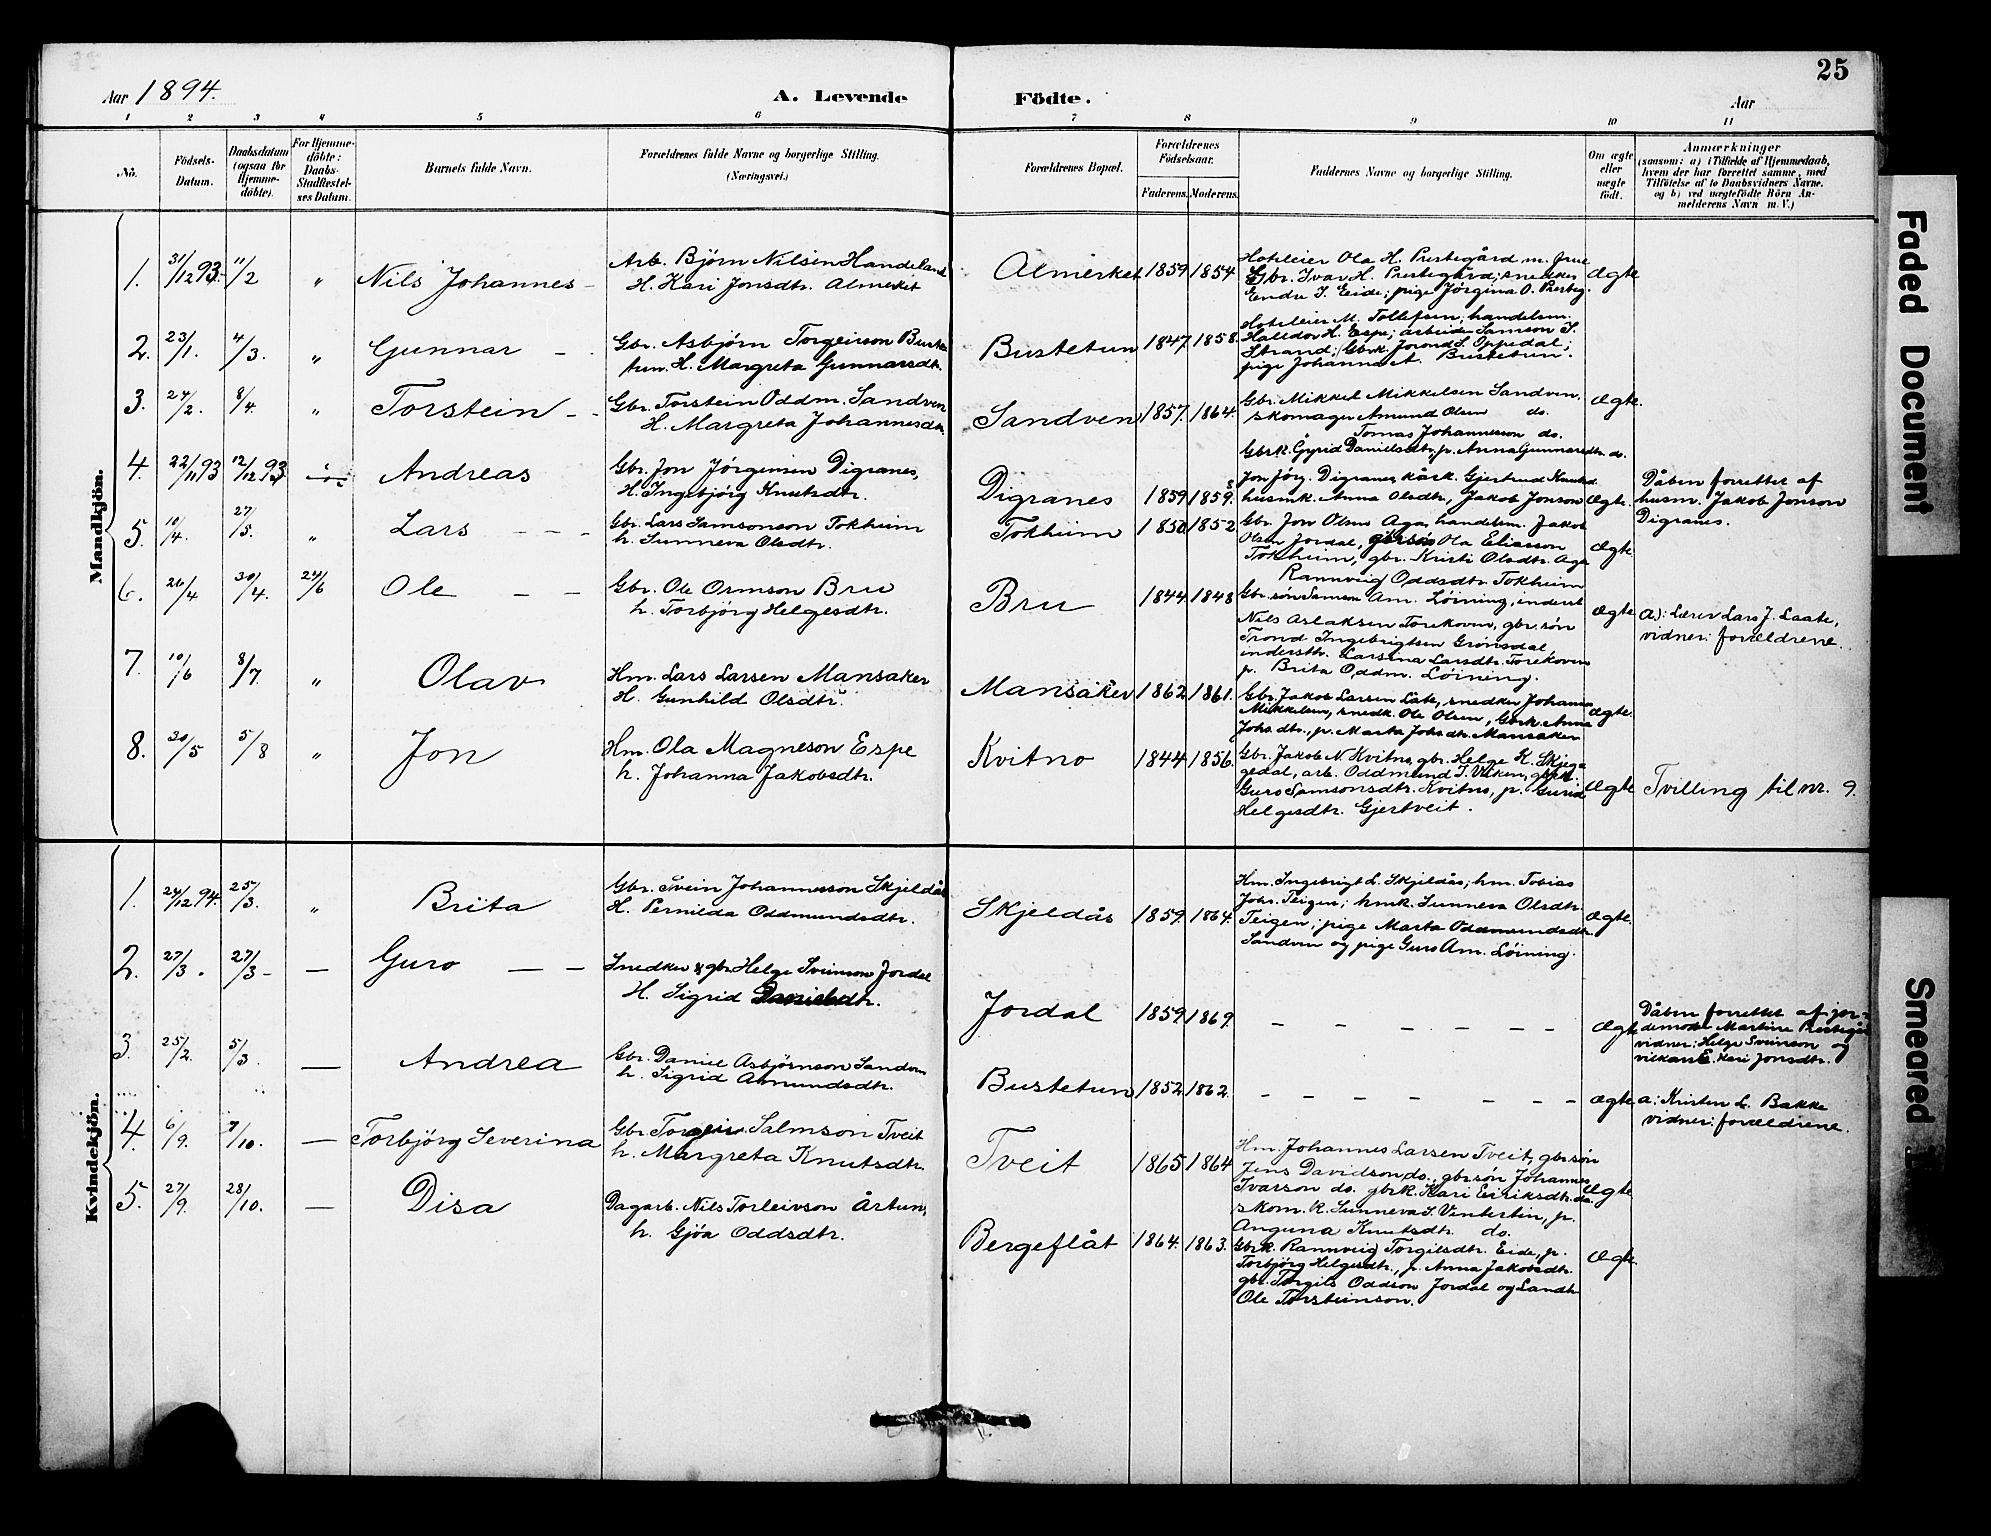 25
Aar 1894.
A. Levende Födte.
Aar
1 2 3 4 5 6 7 8 9 10 11
No.
Födsels-Datum.
Daabsdatum (ogsaa for Hjemme-döbte).
For Hjemme-döbte: Daabs-Stadfæstel-ses Datum.
Barnets fulde Navn.
Forældrenes fulde Navne og borgerlige Stilling. (Næringsvei.)
Forældrenes Bopæl.
Forældrenes Födselsaar.
Faderens. Moderens.
Faddernes Navne og borgerlige Stilling.
Om ægte eller uægte födt.
Anmærkninger
(saasom: a) i Tilfælde af Hjemmedaab,
hvem der har forrettet samme, med
Tilföielse af to Daabsvidners Navne.
og b) ved uægtefödte Börn An-
melderens Navn m. V.)
Mandkjön.
1. 31/12 93. 11/2 " Nils Johannes -
Arb. Björn Nilsen Handeland
H. Kari Jonsdtr. Almerket
Almerket 1859 1854.
Hoteleier Ola H. Prestegård m. frue
Gbr. Ivar H. Prestegård; snedker
Endre I. Eide; pige Jørgina O. Presteg.
Ægte
2. 23/1. 4/3. " Gunnar - -
Gbr. Asbjörn Torgeirson Buste
tun. H. Margreta Gunnarsdtr.
Bustetun 1847. 1858.
Hoteleier M. Tollefsen; handelsm.
Halldor H. Espe; arbeider Samson S.
Strand; Gbrk. Jorond S. Oppedal;
pige Johanna A. Bustetun.
3. 24/2. 8/4. " Torstein - -
Gbr. Torstein Oddm. Sandven
H. Margreta Johannesdtr.
Sandven 1857. 1864.
Gbr. Mikkel Mikkelsen Sandven,
skomager Amund Olsen do.
Tomas Johannesson do.
Gbrk. Gyrid Danielsdtr, p. Anna Gunnarsdtr. do.
Ægte.
4. 22/11 93 12/12 93 Andreas
Gbr. Jon Jörgensen Digranes,
H. Ingebjörg Knutsdtr.
Digranes 1859 1859.
Jon Jörg. Digranes, kårk. Gjertrud Knutsd.
husmk. Anna Olsdtr, Jakob Jonson
Ægte.
Dåben forrettet af
husm. Jakob Jonson
Digranes.
5. 10/4. 27/5. " Lars - - -
Gbr. Lars Samsonson Tokheim
h. Sunneva Olsdtr.
Tokheim 1850 1852
Gbr. Jon Olsen Aga, handelsm. Jakob
Olsen Jordal, gbrsön Ola Eliasson
Tokheim, gbr. Kristi Olsdtr. Aga
Rannveig Oddsdtr. Tokheim
Ægte
6. 26/4 30/4. 24/6 Ole - -
Gbr. Ole Ormson Bru
h. Torbjörg Helgesdtr.
Bru 1844 1848
Gbr. søn Samson Am. Löining, inderst
Nils Aslaksen Torekoven, gbr. søn
Trond Ingebrigtsen Grönsdal,
inderstk. Larsina Larsdtr. Torekoven
p. Brita Oddm. Löining.
Ægte
a): Lærer Lars J. Laate,
vidner: forældrene.
7. 10/6 8/7. " Olav
Hm. Lars Larsen Mansaker
H. Gunhild Olsdtr.
Mansaker 1862 1861.
Gbr. Jakob Larsen Låte, snedker Johannes
Mikkelsen, snedk. Ole Olsen, Gbrk. Anna
Johs.dtr., p. Marta Johsdtr. Mansaker
Ægte.
8. 20/5 5/8 " Jon
Hm. Ola Magneson Espe
h. Johanna Jakobsdtr.
Kvitno 1844 1856.
Gbr. Jakob N. Kvitno, gbr. Helge K. Skjeg-
gedal, arb. Oddmund T. Viken, gbrk.
Guro Samsonsdtr. Kvitno, p. Gurid
Helgesdtr. Gjertveit.
Ægte
Tvilling til nr. 9.
Kvindekjön.
1. 24/12 94. 25/3. " Brita
Gbr. Svein Johannesson Skjeldås
H. Pernilda Oddmundsdtr.
Skjeldås 1859. 1864.
Hm. Ingebrigt L. Skjeldås; hm. Tobias
Johs. Teigen; hmk. Sunneva Olsdtr.
Teigen; pige Marta Oddmundsdtr.
Sandven og pige Guro Am. Löining.
Ægte.
2. 27/3. 27/3 - — Guro - -
Snedker & gbr. Helge Sveinson Jordal
H. Sigrid Danielsdtr.
Jordal 1859 1869.
- - - - - - -
Ægte
Dåben forrettet af jor-
demoder Martine Prestegår
vidner: Helge Sveinson og
Kari Jonsdtr.
3. 25/2. 5/3. — Andrea
Gbr. Daniel Asbjörnson Sandven
h. Sigrid Amundsdtr.
Bustetun 1852 1862.
- - - - - - -
Ægte
a: Kristen L. Bakke
vidner: forældrene.
4. 6/9. 7/10. — Torbjörg Severina
Gbr. Torgeir Salmson Tveit
h. Margreta Knutsdtr.
Tveit 1865 1864
Hm. Johannes Larsen Tveit, gbr. søn
Jens Davidson do., gbr. søn Johannes
Ivarson do. gbrk. Kari Eiriksdtr. do.
skom. k. Sunneva S. Vintertun, p.
Anguna Knutsdtr. do.
Ægte
5. 27/9. 28/10. — Disa
Dagarb. Nils Torleivson Årtun,
h. Gjöa Oddsdtr.
Bergeflåt 1864. 1863.
Gbrk. Rannveig Torgilsdtr. Eide, p.
Torbjörg Helgesdtr., p. Anna Jakobsdtr.
gbr. Torgils Oddson Jordal og Landh.
Ole Torsteinson.
Ægte.
Faded Document
Smeared